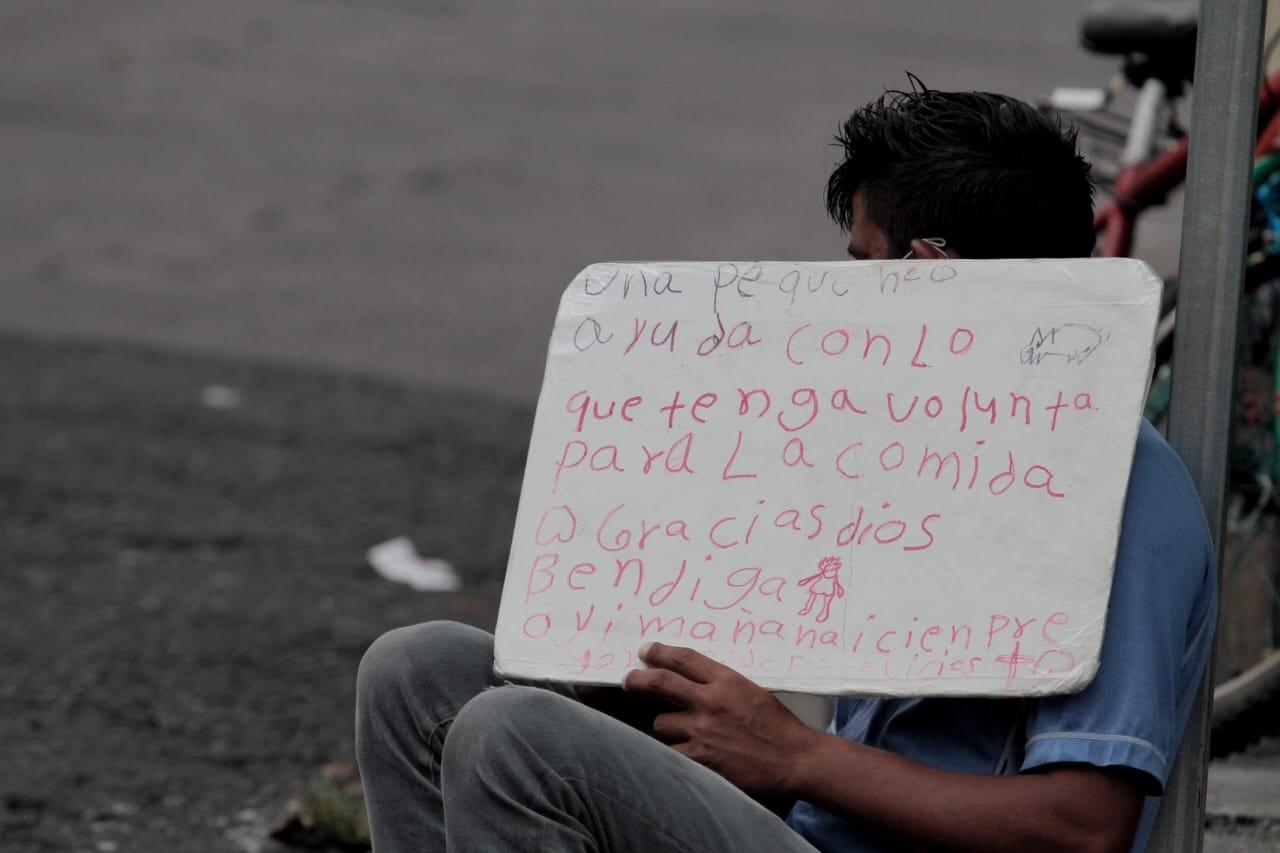 una pequeñeo
ayuda con lo
que tenga volunta
para La comida
Gracias dios
Bendiga
oyi mañana i cienpre
yo no pido para vicios